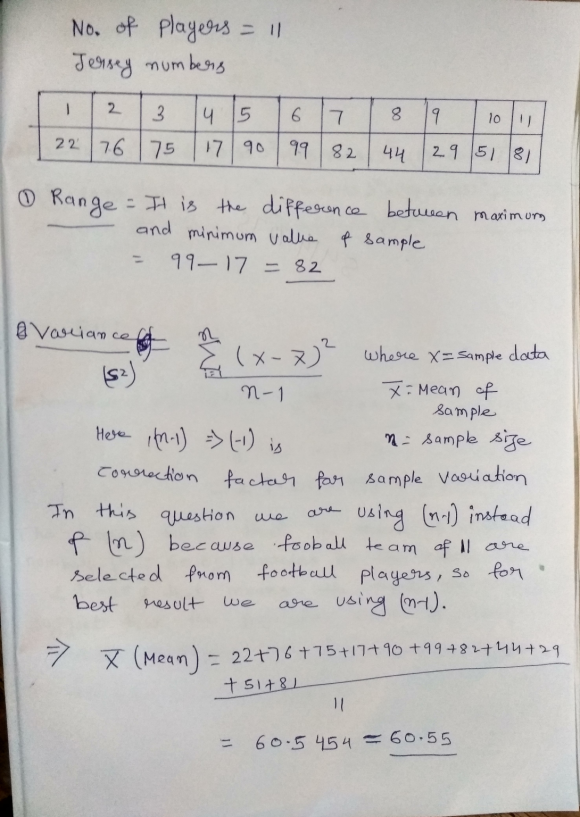 No. of players = 11
Jersey numbers
1 2 3 4 5 6 7 8 9 10 11
22 76 75 17 90 99 82 44 29 51 81
① Range = It is the difference between maximum
and minimum value of sample
= 99-17 = 82
Variance = n Σ i=1 (x-x̄)² where x = sample data
(S²) n-1 x̄: Mean of
sample
Here, (n-1) ⇒ (-1) is n = sample size
correction factor for sample variation
In this question we are using (n-1) instead
of (n) because fooball team of 11 are
selected from football players, so for
best result we are using (n-1).
⇒ X̄ (Mean) = 22+76+75+17+90+99+82+44+29
+51+81
11
= 60.5454 = 60.55